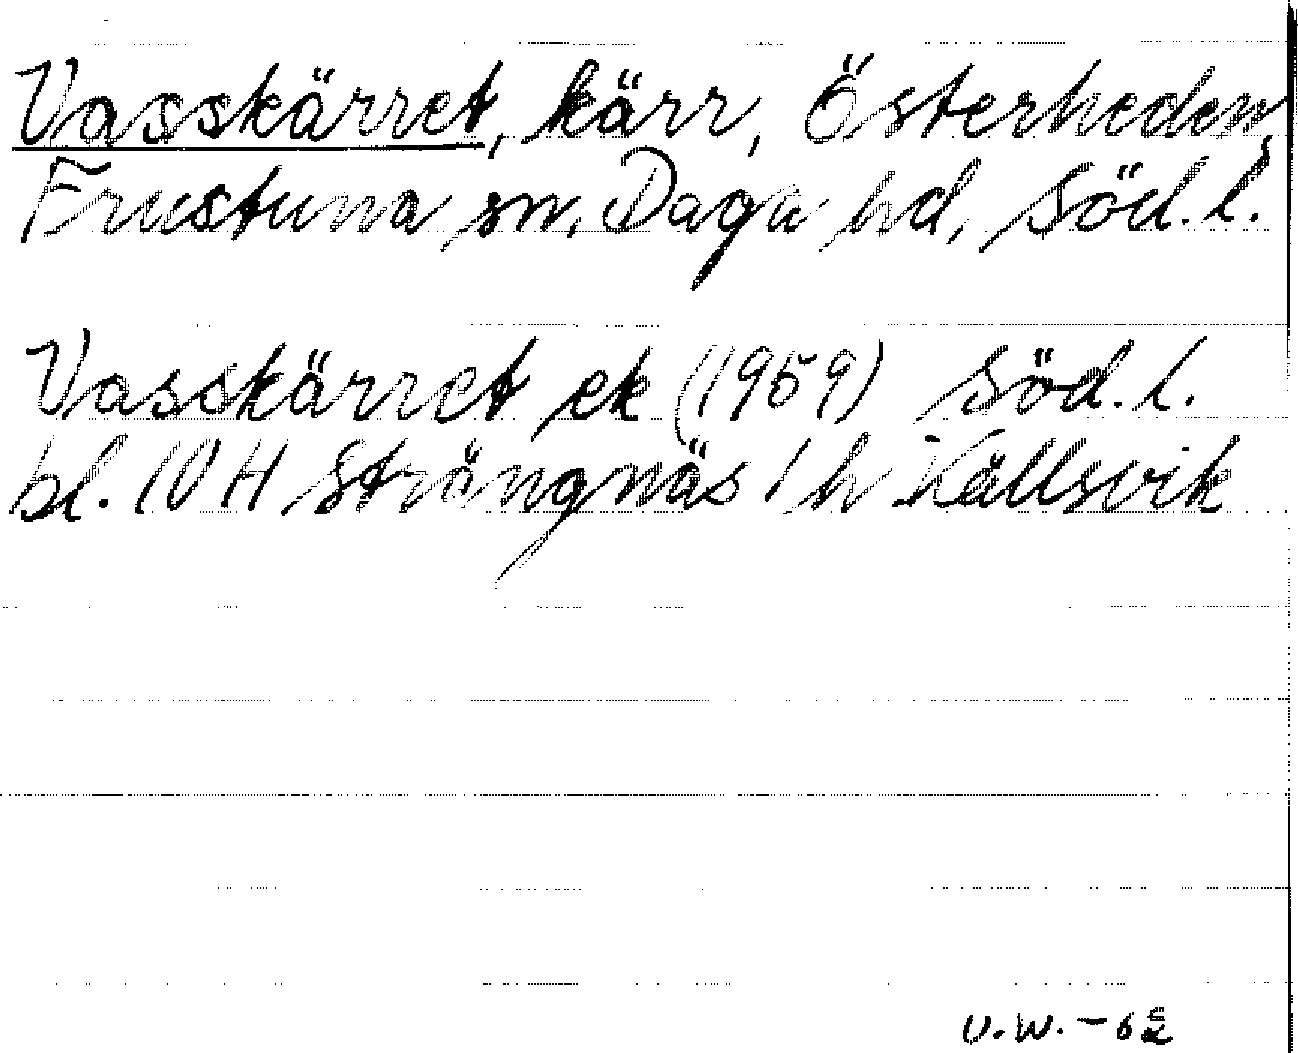 Vasskärret, kärr, Österheden,
Frustuna sn, Daga hd, Söd. l.
Vasskärret ek (1959) Söd. l.
bl. IV H Strängnäs 1 h Källsvik
U.W. - 62